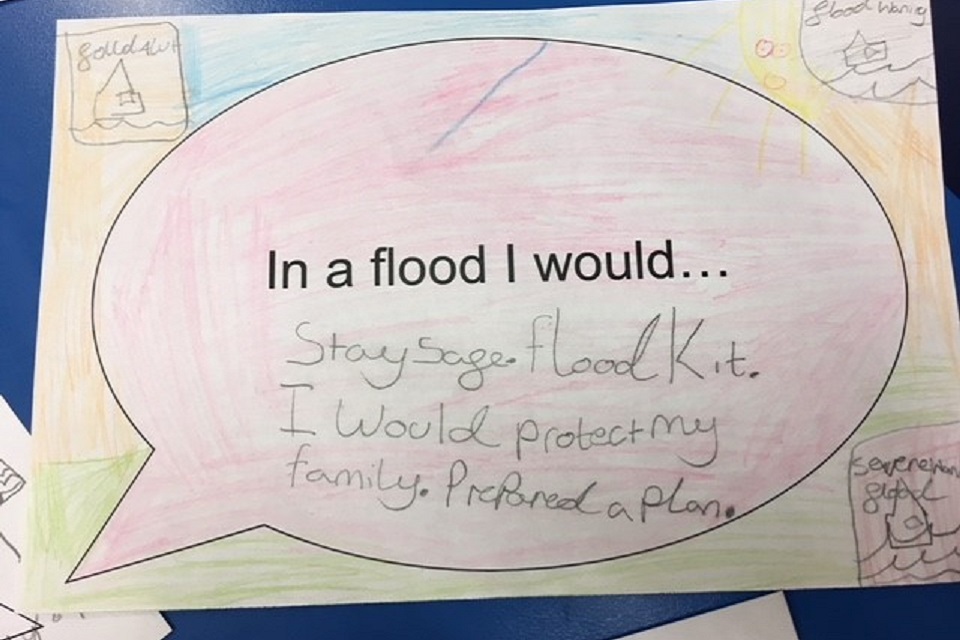 flood Warnig
In a flood I would...
Stay sage. flood Kit.
I Would protect my
family. Prepared a Plan.
flood